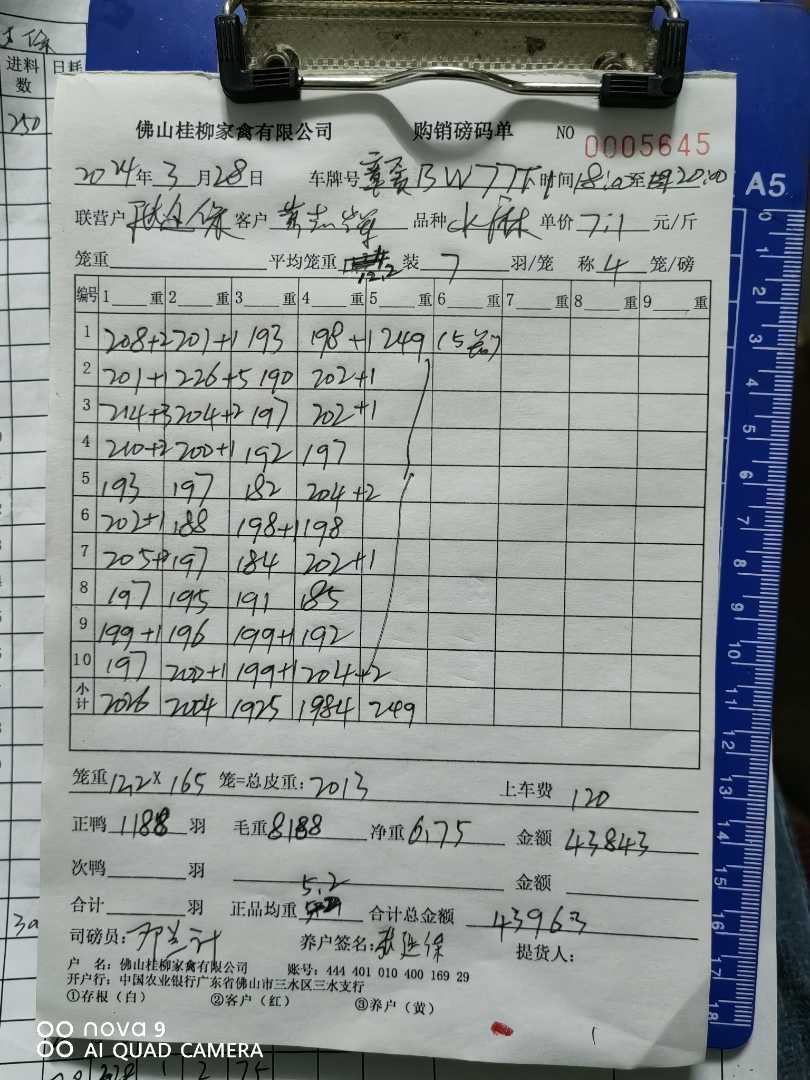 进料 日耗
数
250
佛山桂柳家禽有限公司 购销磅码单 NO 0005645
2024年3月28日 车牌号 BW77 时间18:00至20:00
联营户 客户 品种 单价7.1元/斤
笼重 平均笼重12.2 装7羽/笼 称4笼/磅
编号 1 重 2 重 3 重 4 重 5 重 6 重 7 重 8 重 9 重
1 208+2 201+1 193 198+1 249 (5笼)
2 201+1 226+5 190 202+1
3 214+3 204+2 197 202+1
4 210+2 200+1 192 197
5 193 197 182 204+2
6 202+1 188 198+1 198
7 205+ 197 184 202+1
8 197 195 191 185
9 199+1 196 199+1 192
10 197 200+1 199+1 204+2
小计 2026 2004 1925 1984 249
笼重12.2×165笼=总皮重:2013 上车费 120
正鸭1188羽 毛重8188 净重6175 金额43843
次鸭 羽 金额
5.2
合计 羽 正品均重 合计总金额 43963
司磅员: 养户签名: 提货人:
户 名:佛山桂柳家禽有限公司 账号:444 401 010 400 169 29
开户行:中国农业银行广东省佛山市三水区三水支行
①存根(白) ②客户(红) ③养户(黄)
A5
0
1
2
3
4
5
6
7
8
9
10
11
12
13
14
15
16
17
18
nova 9
AI QUAD CAMERA